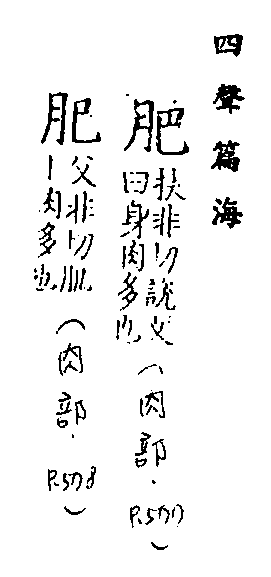 四聲篇海
肥 扶非切說文曰身肉多也（肉部．P.577）
肥 父非切肌｜肉多也（肉部．P.578）